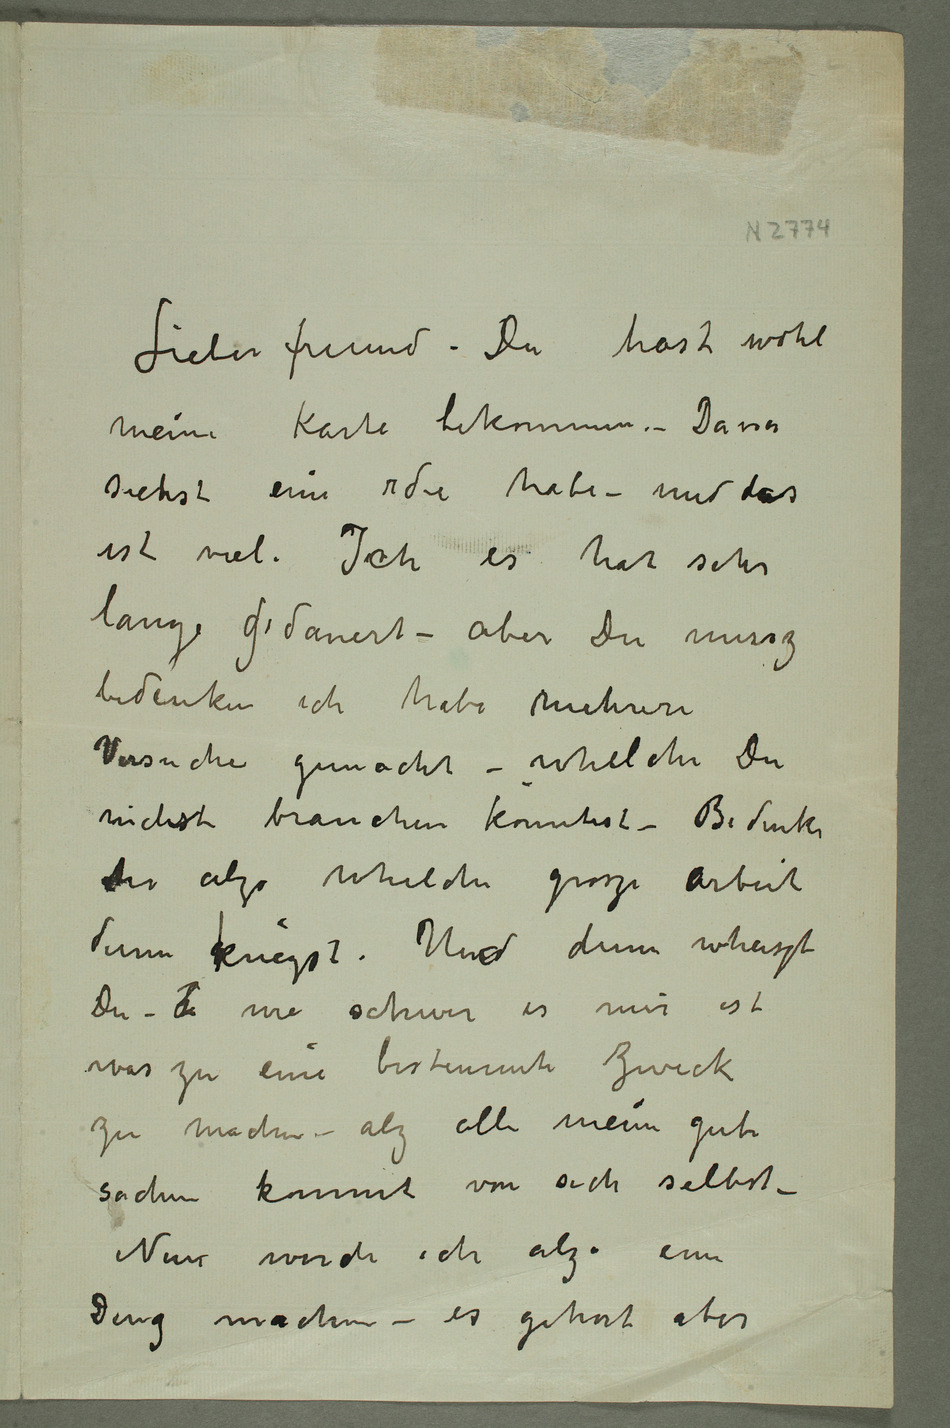 N 2774
Lieber freund – Du hast wohl
meine Karte bekommen. – Da
siehst eine Idee habe – und das
ist viel. Ich es hat sehr
lange gedauert – aber Du mussz
bedenken ich habe mehrere
Versuche gemacht – whelche Du
nichst brauchen könntest – Bedenke
Du alzo whelche grosze Arbeit
denn kriegst. Und denn wheiszt
Du – wie schwer es mir ist
was zu eine bestemmte Zweck
zu machen – alz alle meine gute
sachen kommt von sich selbst –
Nun werde ich alzo eine
Ding machen – es gehört aber